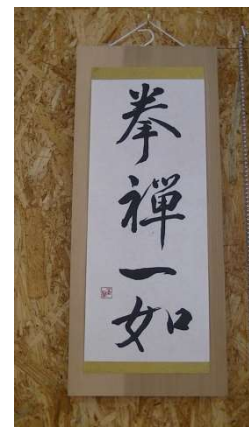 拳禅一如